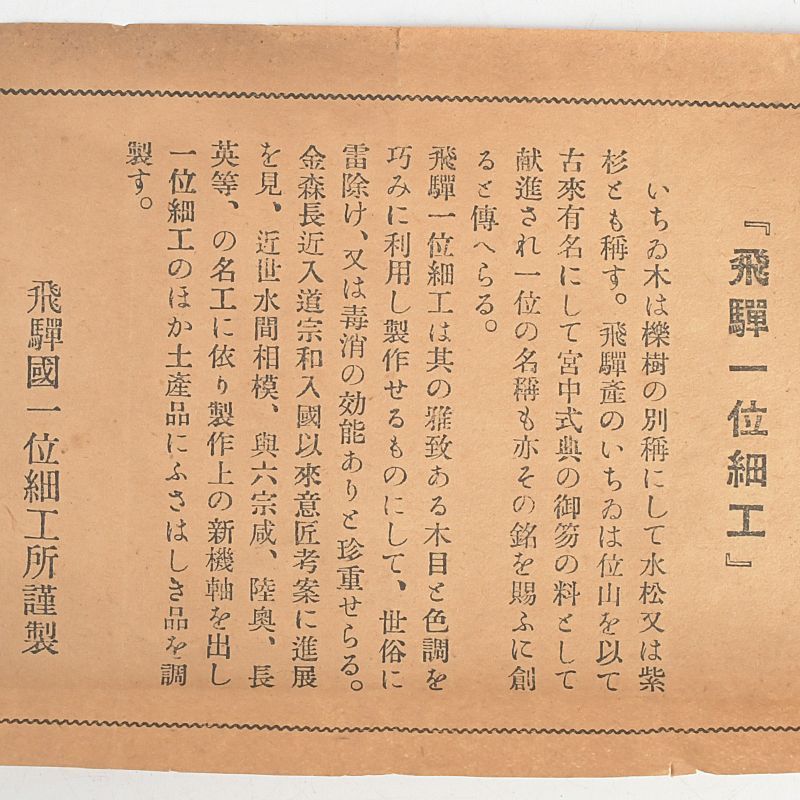 『飛驒一位細工』
いちゐ木は櫟樹の別稱にして水松又は紫
杉とも稱す。飛驒產のいちゐは位山を以て
古來有名にして宮中式典の御笏の料として
献進され一位の名稱も亦その銘を賜ふに創
ると傳へらる。
飛驒一位細工は其の雅致ある木目と色調を
巧みに利用し製作せるものにして、世俗に
雷除け、又は毒消の効能ありと珍重せらる。
金森長近入道宗和入國以來意匠考案に進展
を見、近世水間相模、與六宗咸、陸奧、長
英等、の名工に依り製作上の新機軸を出し
一位細工のほか土產品にふさはしき品を調
製す。
飛驒國一位細工所謹製